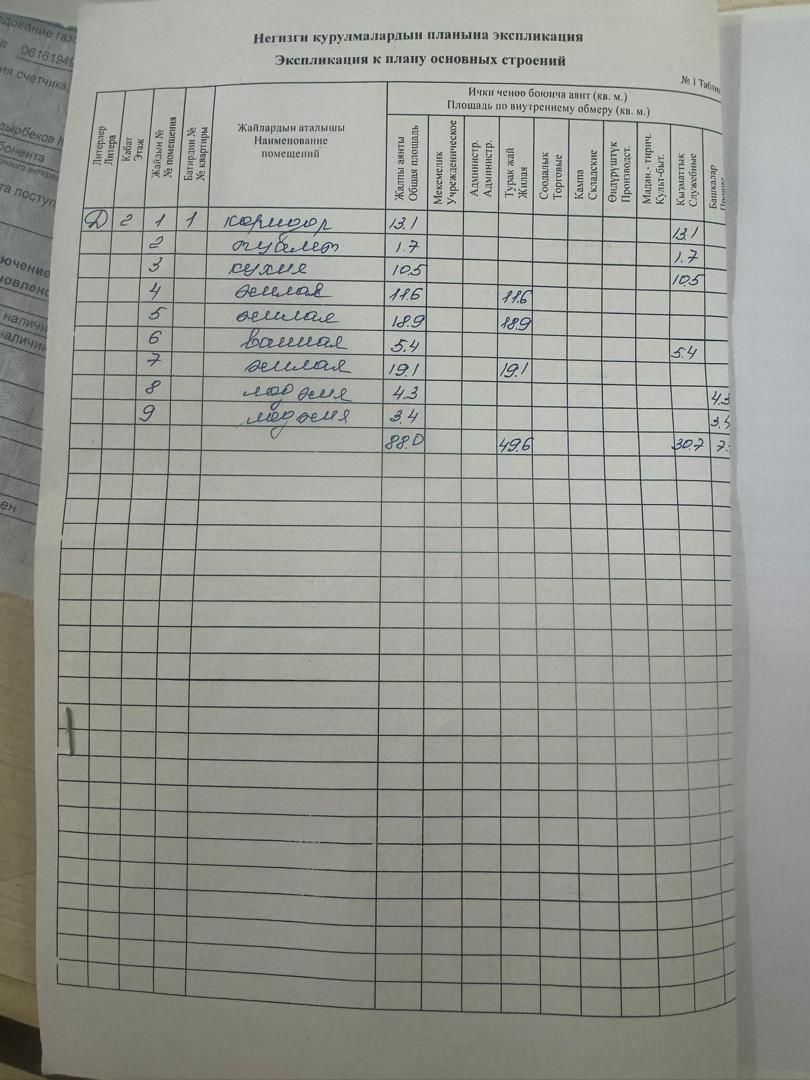 Негизги курулмалардын планына экспликация
Экспликация к плану основных строений
№ 1 Таблиц
Литерлер Литера
Кабат Этаж
Жайдын № № помещения
Батирдин № № квартиры
Жайлардын аталышы Наименование помещений
Ички ченөө боюнча аянт (кв. м.)
Площадь по внутреннему обмеру (кв. м.)
Жалпы аянты Общая площадь
Мекемелик Учрежденическое
Администр. Администр.
Турак жай Жилая
Соодалык Торговые
Кампа Складские
Өндүрүштүк Производст.
Мадан.- тирич. Культ-быт.
Кызматтык Служебные
Башкалар
Д 2 1 1 коридор 13.1 13.1
2 туалет 1.7 1.7
3 кухня 10.5 10.5
4 жилая 11.6 11.6
5 жилая 18.9 18.9
6 ванная 5.4 5.4
7 жилая 19.1 19.1
8 лоджия 4.3 4.3
9 лоджия 3.4 3.4
88.0 49.6 30.7 7.
06161949
ия счетчика
дырбеков
бонента
та поступ
ключение
новлено
наличи
наличи
ен